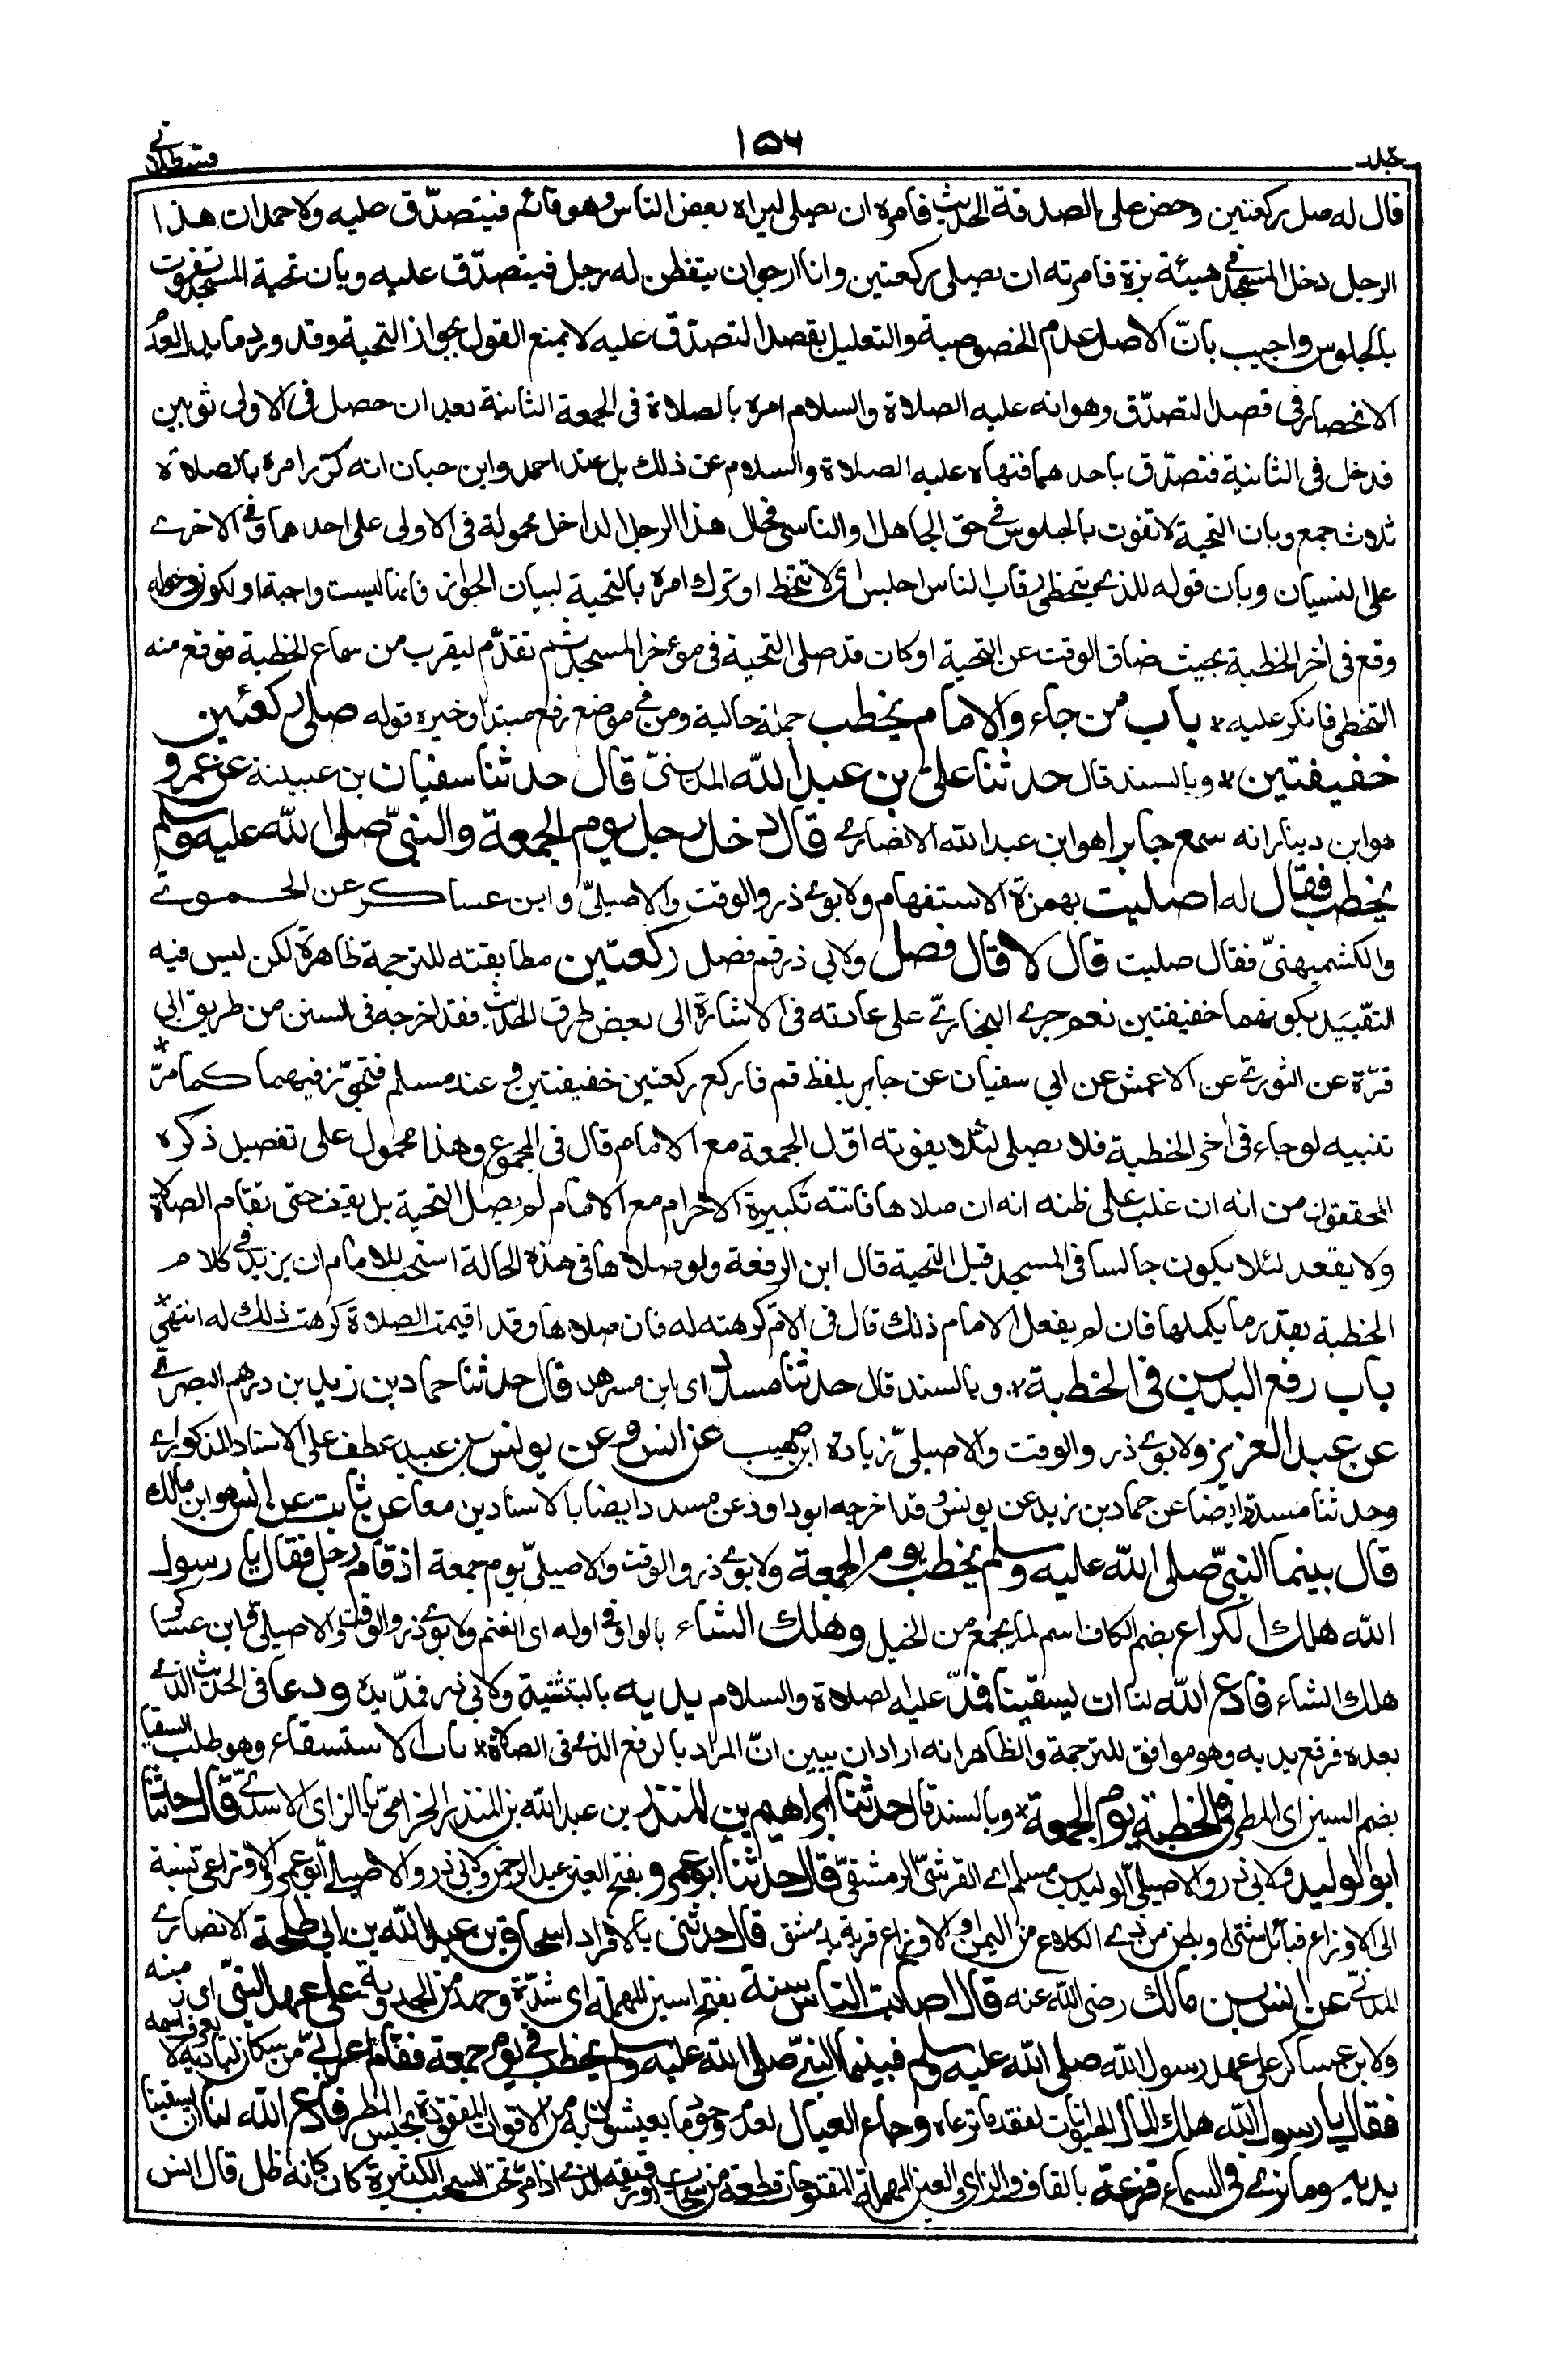 جلد
١٥٦
قسطلانے
قال له صل ركعتين وحض على الصدقة الحديث فامره ان يصلى ليراه بعض الناس وهو قائم فيتصدّق عليه ولاحمد ان هذا
الرجل دخل المسجد فى هيئة بزة فامرته ان يصلى ركعتين وانا ارجو ان يتفطن له رجل فيتصدّق عليه وبان تحية المسجد تفوت
بالجلوس واجيب بانّ الاصل عدم الخصوصية والتعليل بقصد التصدّق عليه لا يمنع القول بجواز التحية وقد ورد ما يدل لعدم
الانحصار فى قصد التصدّق وهو انه عليه الصلاة والسلام امره بالصلاة فى الجمعة الثانية بعد ان حصل فى الاولى ثوبين
فدخل فى الثانية فتصدّق باحدهما فنهاه عليه الصلاة والسلام عن ذلك بل عند احمد وابن حبان انه كرّر امره بالصلاة
ثلاث جمع وبان التحية لا تفوت بالجلوس فى حق الجاهل او الناسى فحال هذا الرجل الداخل محمولة فى الاولى على احدهما وفى الاخرى
على النسيان وبان قوله للذى يتخطى رقاب الناس اجلس اى لا تتخط او ترك امره بالتحية لبيان الجواز فانها ليست واجبة او لكون دخوله
وقع فى اخر الخطبة بحيث ضاق الوقت عن التحية او كان قد صلى التحية فى مؤخر المسجد ثم تقدّم ليقرب من سماع الخطبة فوقع منه
التخطى فانكر عليه * باب من جاء والامام يخطب جملة حالية ومن فى موضع رفع مبتدا وخبره قوله صلى ركعتين
خفيفتين * وبالسند قال حدثنا على بن عبد الله المدينىّ قال حدثنا سفيان بن عيينة عن عمرو
هو ابن دينار انه سمع جابرا هو ابن عبد الله الانصارى قال دخل رجل يوم الجمعة والنبىّ صلى الله عليه وسلم
يخطب فقال له اصليت بهمزة الاستفهام ولابوى ذر والوقت والاصيلىّ وابن عساكر عن الحموى
والكشميهنىّ فقال صليت قال لا قال فصل ولابى ذر قم فصل ركعتين مطابقته للترجمة ظاهرة لكن ليس فيه
التقييد بكونهما خفيفتين نعم جرى البخارىّ على عادته فى الاشارة الى بعض طرق الحديث فقد اخرجه فى السنن من طريق ابى
قرّة عن الثورى عن الاعمش عن ابى سفيان عن جابر بلفظ قم فاركع ركعتين خفيفتين وعند مسلم فتجوّز فيهما كما مرّ *
تنبيه لو جاء فى اخر الخطبة فلا يصلى لئلا يفوته اوّل الجمعة مع الامام قال فى المجموع وهذا محمول على تفصيل ذكره
المحققون من انه ان غلب على ظنه انه ان صلاها فاتته تكبيرة الاحرام مع الامام لم يصل التحية بل يقف حتى تقام الصلاة
ولا يقعد لئلا يكون جالسا فى المسجد قبل التحية قال ابن الرفعة ولو صلاها فى هذه الحالة استحب للامام ان يزيد فى كلام
الخطبة بقدر ما يكملها فان لم يفعل الامام ذلك قال فى الام كرهته له فان صلاها وقد اقيمت الصلاة كرهت ذلك له انتهى *
باب رفع اليدين فى الخطبة * وبالسند قال حدثنا مسدد اى ابن مسرهد قال حدثنا حماد بن زيد بن درهم البصرىّ
عن عبد العزيز ولابوى ذر والوقت والاصيلىّ زيادة ابن صهيب عن انس وعن يونس بن عبيد عطف على الاسناد المذكور اى
وحدثنا مسدد ايضا عن حماد بن زيد عن يونس وقد اخرجه ابو داود عن مسدد ايضا بالاسنادين معا عن ثابت عن انس هو ابن مالك
قال بينما النبىّ صلى الله عليه وسلم يخطب يوم الجمعة ولابوى ذر والوقت والاصيلىّ يوم جمعة اذ قام رجل فقال يا رسول
الله هلك الكراع بضم الكاف اسم لما يجمع من الخيل وهلك الشاء بالواو فى اوله اى الغنم ولابوى ذر والوقت والاصيلىّ وابن عساكر
هلك الشاء فادع الله لنا ان يسقينا فمدّ عليه الصلاة والسلام يديه بالتثنية ولابى ذر فمدّ يده ودعا فى الحديث الذى
بعده فرفع يديه وهو موافق للترجمة والظاهر انه اراد ان يبين انّ المراد بالرفع الذى فى الصلاة * باب الاستسقاء وهو طلب السقيا
بضم السين اى المطر فى الخطبة يوم الجمعة * وبالسند قال حدثنا ابراهيم بن المنذر بن عبد الله بن المنذر الحزامىّ بالزاى الاسدىّ قال حدثنا
ابو الوليد ولابى ذر والاصيلىّ الوليد بن مسلم اى القرشىّ الدمشقىّ قال حدثنا ابو عمرو بفتح العين عبد الرحمن ولابى ذر والاصيلى ابو عمرو الاوزاعىّ نسبة
الى الاوزاع قبائل شتى او بطن من ذى الكلاع من اليمن او الاوزاع قرية بدمشق قال حدثنى بالافراد اسحاق بن عبد الله بن ابى طلحة الانصارى
المدنىّ عن انس بن مالك رضى الله عنه قال اصابت الناس سنة بفتح السين المهملة اى شدّة وجهد من الجدوبة على عهد النبىّ اى زمنه
ولابن عساكر على عهد رسول الله صلى الله عليه وسلم فبينما النبىّ صلى الله عليه وسلم يخطب فى يوم جمعة فقام اعرابىّ من سكان البادية لا يعرف اسمه
فقال يا رسول الله هلك المال الحيوانات لفقد ما ترعاه وجاع العيال لعدم وجود ما يعيشون به من الاقوات المفقودة بحبس المطر فادع الله لنا ان يسقينا
يديه وما نرى فى السماء قزعة بالقاف والزاى والعين المهملة المفتوحات قطعة من سحاب او رقيقه الذى اذا مرّ تحت السحب الكثيرة كان كانه ظل قال انس